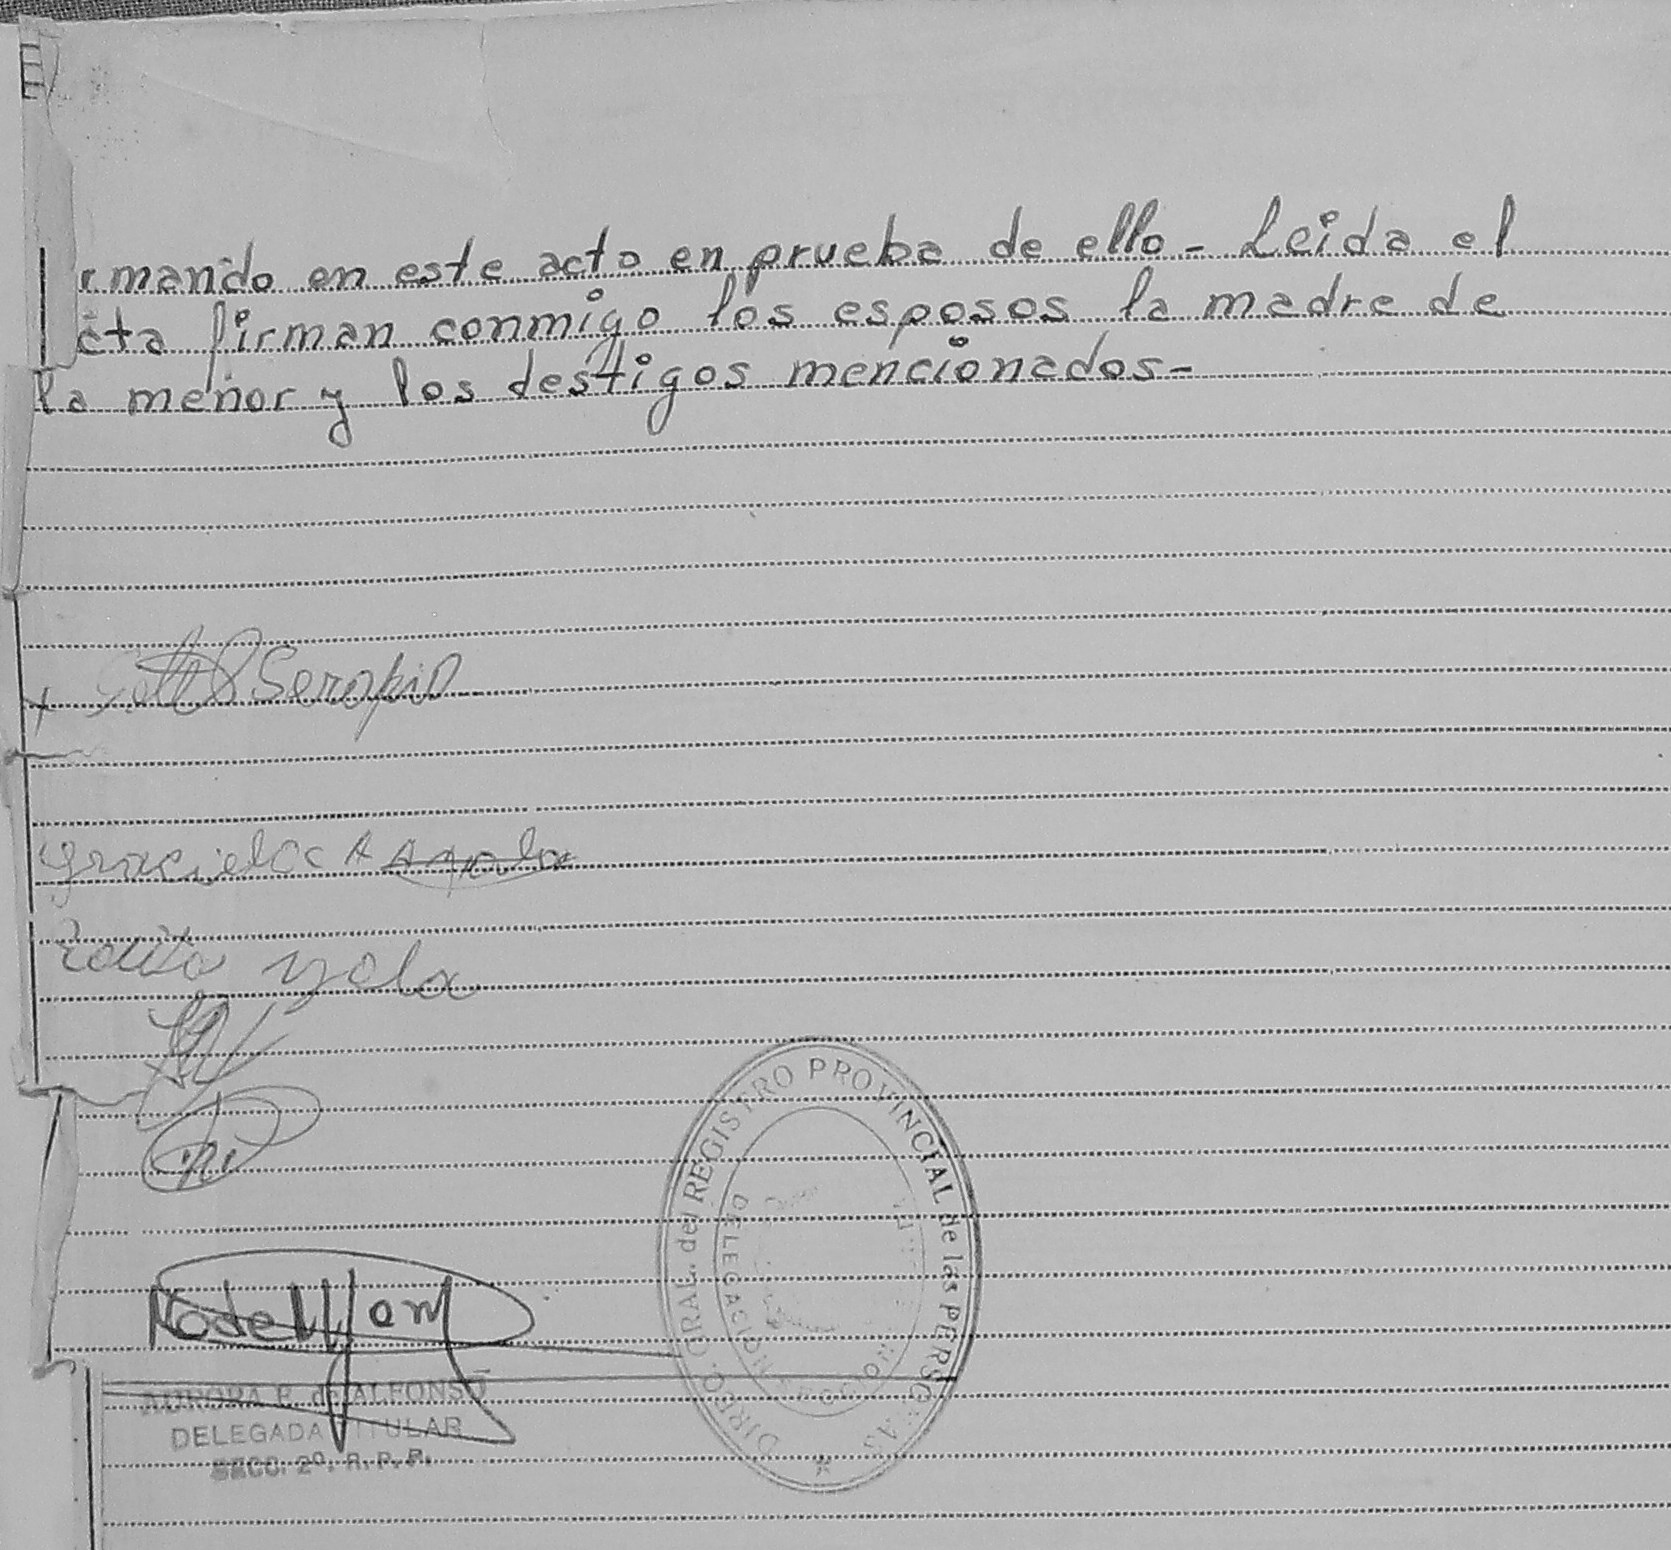 rmando en este acto en prueba de ello - Leida el
acta firman conmigo los esposos la madre de
la menor y los destigos mencionados -
Serapio
Graciela A Ayala
yala
DIREC. GRAL. del REGISTRO PROVINCIAL de las PERSONAS
DELEGACION
AURORA E. de ALFONSO
DELEGADA TITULAR
SECC. 2º. R. P. P.